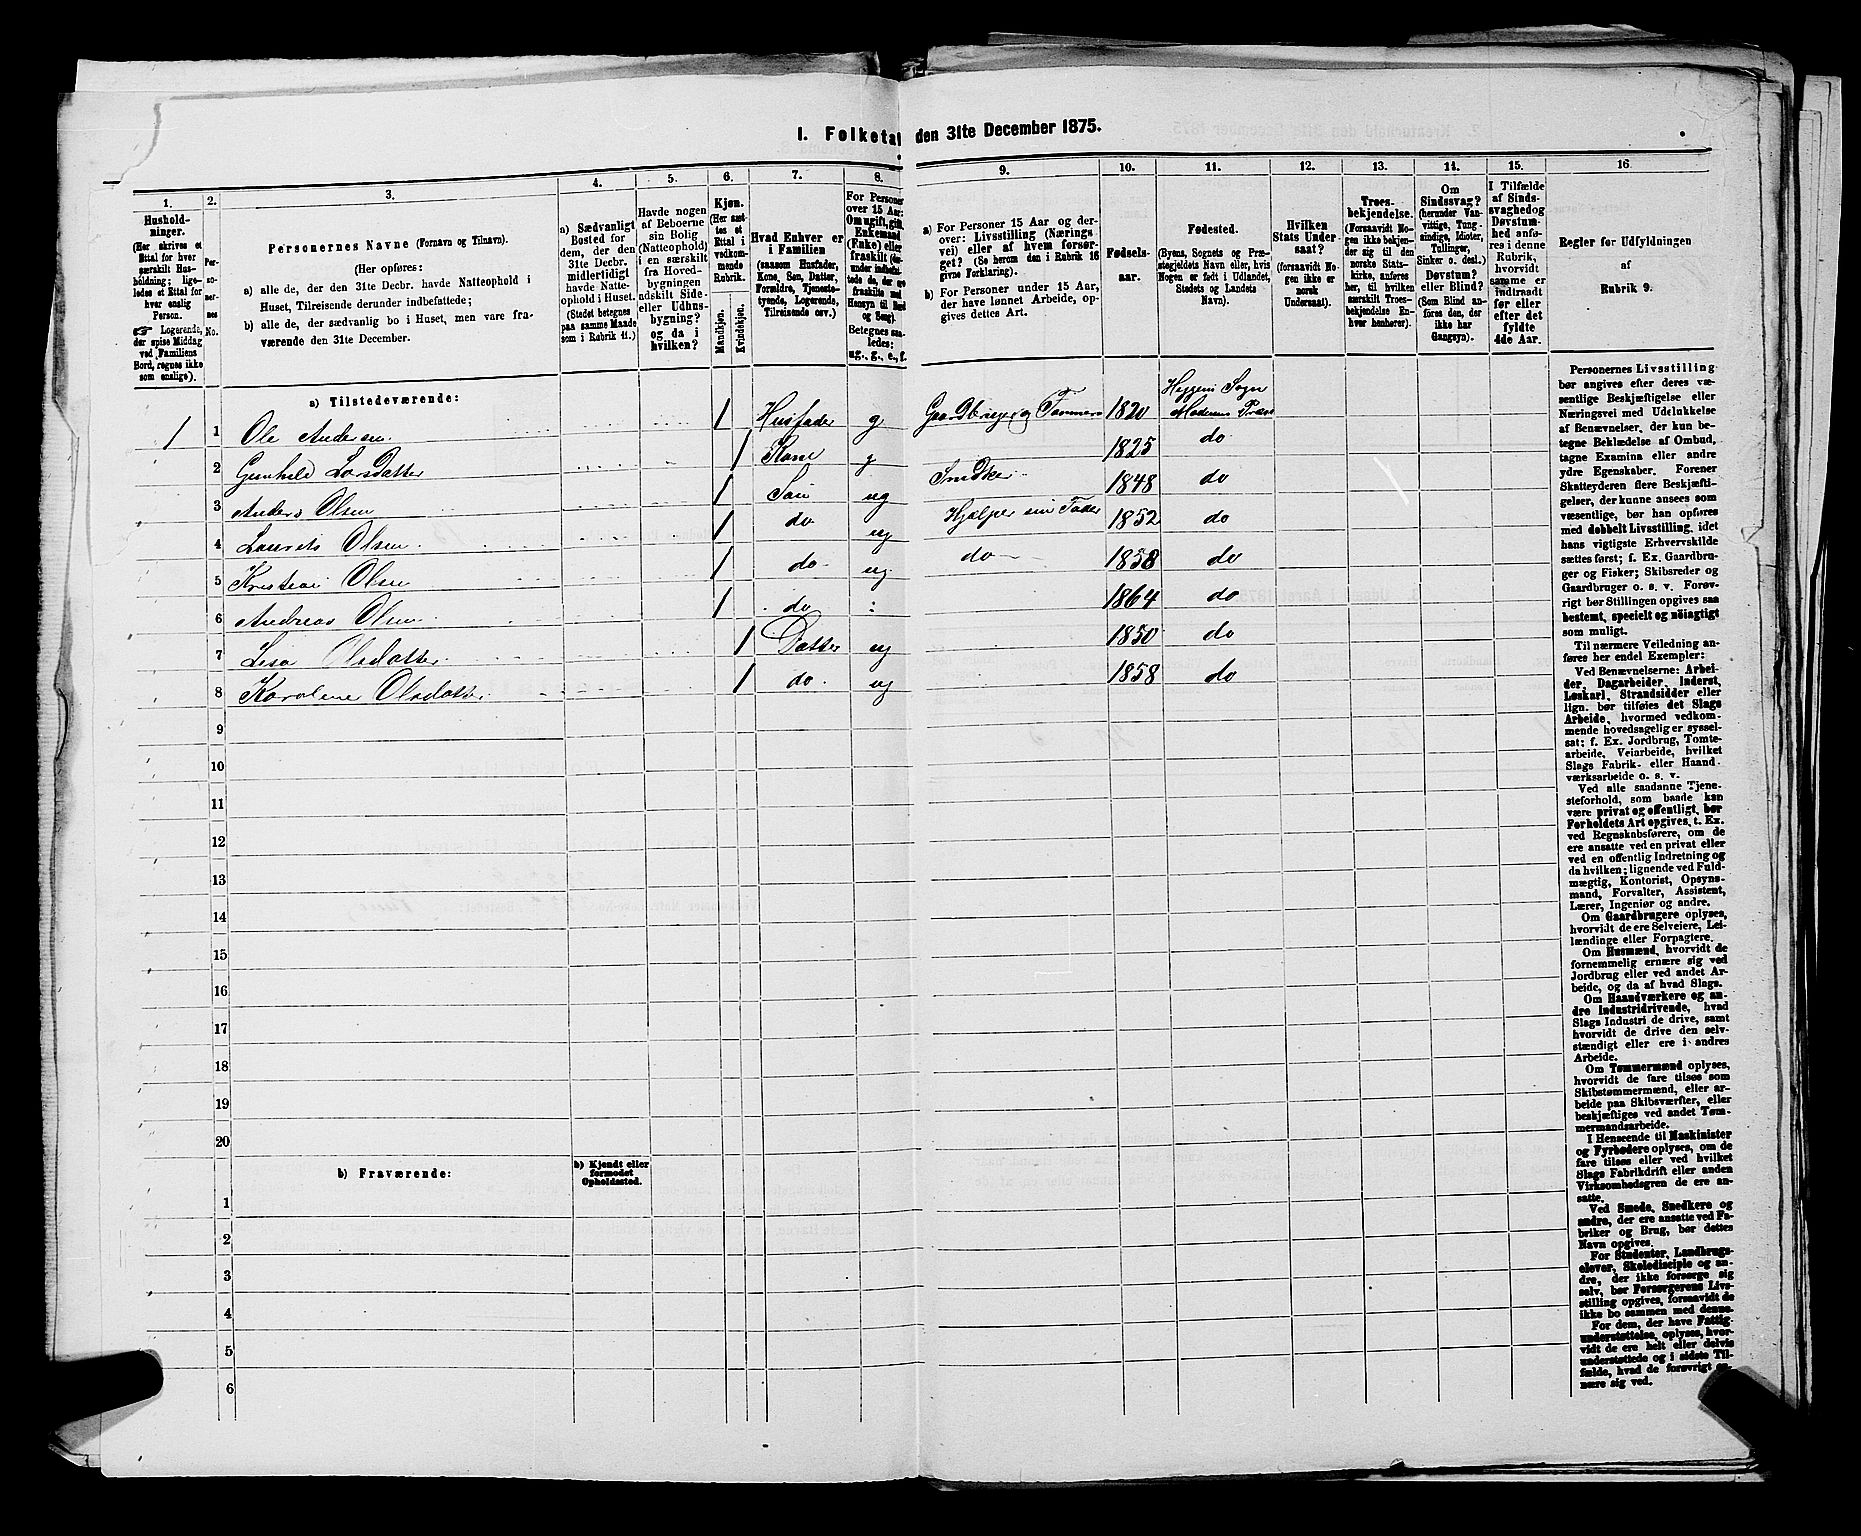 I. Folketa den 31te December 1875.
1. 2. 3. 4. 5. 6. 7. 8. 9. 10. 11. 12. 13. 14. 15. 16
Hushold-
ninger.
(Her skrives et
Ettal for hver
særskilt Hus-
holdning; lige-
ledes et Ettal for
hver enslig
Person.
☞ Logerende,
der spise Middag
ved Familiens
Bord, regnes ikke
som enslige).
Per-
so-
ner-
nes
No.
Personernes Navne (Fornavn og Tilnavn).
(Her opføres:
a) alle de, der den 31te Decbr. havde Natteophold i
Huset, Tilreisende derunder indbefattede;
b) alle de, der sædvanlig bo i Huset, men vare fra-
værende den 31te December.
a) Sædvanligt
Bosted for
dem, der den
31te Decbr.
midlertidigt
havde Natte-
ophold i Huset.
(Stedet betegnes
paa samme Maade
som i Rubrik 11.)
Havde nogen
af Beboerne
sin Bolig
(Natteophold)
i en særskilt
fra Hoved-
bygningen
adskilt Side-
eller Udhus-
bygning?
og da i
hvilken?
Kjøn.
(Her sæt-
tes et
Ettal i
vedkom-
mende
Rubrik.
Mandkjøn.
Kvindekjøn.
Hvad Enhver er
i Familien
(saasom Husfader,
Kone, Søn, Datter,
Forældre, Tjeneste-
tyende, Logerende,
Tilreisende osv.)
For Personer
over 15 Aar:
Om ugift, gift,
Enkemand
(Enke) eller
fraskilt
Betegnes saa-
ledes:
ug., g., e., f.
a) For Personer 15 Aar og der-
over: Livsstilling (Nærings
vei) eller af hvem forsør-
get? (Se herom den i Rubrik 16
givne Forklaring).
b) For Personer under 15 Aar,
der have lønnet Arbeide, op-
gives dettes Art.
Fødsels-
aar.
Fødested.
(Byens, Sognets og Præ-
stegjeldets Navn eller, hvis
Nogen er født i Udlandet,
Stedets og Landets
Navn).
Hvilken
Stats Under
saat?
(forsaavidt No-
gen ikke er
norsk
Undersaat).
Troes-
bekjendelse.
(Forsaavidt No-
gen ikke bekjen-
der sig til den
norske Stats-
kirke, anføres
her, til hvilken
særskilt Troes-
bekjendelse En-
hver henhører).
Om
Sindssvag?
(herunder Van-
vittige, Tung-
sindige, Idioter,
Tullinger,
Sinker o. desl.)
Døvstum?
eller Blind?
(Som Blind an-
føres den, der
ikke har
Gangsyn).
I Tilfælde
af Sinds-
svaghed og
Døvstum-
hed anfø-
res i denne
Rubrik,
hvorvidt
samme er
indtraadt
før eller
efter det
fyldte
4de Aar.
Regler før Udfyldningen
af
Rubrik 9.
a) Tilstedeværende:
Heggens Sogn
1 1 Ole Andersen 1 Husfader g Gaardbruger og Tømmer 1820 Modums Præs
2 Gunhild Larsdatter 1 Kone g 1825 do
3 Anders Olsen 1 Søn ug Snedker 1848 do
4 Laurits Olsen 1 do ug Hjælper sin Fader 1852 do
5 Kristian Olsen 1 do ug do 1858 do
6 Andreas Olsen 1 do 1864 do
7 Lisa Olsdatter 1 Datter ug 1850 do
8 Karolene Olsdatter 1 do ug 1858 do
9
10
11
12
13
14
15
16
17
18
19
20
b) Fraværende:
b) Kjendt eller
formodet
Opholdssted.
1
2
3
4
5
6
Personernes Livsstilling
bør angives efter deres væ-
sentlige Beskjæftigelse eller
Næringsvei med Udelukkelse
af Benævnelser, der kun be-
tegne Beklædelse af Ombud,
tagne Examina eller andre
ydre Egenskaber. Forener
Skatteyderen flere Beskjæfti-
gelser, der kunne ansees som
væsentlige, bør han opføres
med dobbelt Livsstilling, idet
hans vigtigste Erhvervskilde
sættes først; f. Ex. Gaardbru-
ger og Fisker; Skibsreder og
Gaardbruger o. s. v. Forøv-
rigt bør Stillingen opgives saa
bestemt, specielt og nøiagtigt
som muligt.
Til nærmere Veiledning an-
føres her endel Exempler:
Ved Benævnelserne: Arbei-
der, Dagarbeider, Inderst,
Løskarl, Strandsidder eller
lign. bør tilføies det Slags
Arbeide, hvormed vedkom-
mende hovedsagelig er syssel-
sat; f. Ex. Jordbrug, Tomte-
arbeide, Veiarbeide, hvilket
Slags Fabrik- eller Haand-
værksarbeide o. s. v.
Ved alle saadanne Tjene-
steforhold, som baade kan
være privat og offentligt, bør
Forholdets Art opgives, t. Ex.
ved Regnskabsførere, om de
ere ansatte ved en privat eller
ved en offentlig Indretning og
da hvilken; lignende ved Fuld-
mægtig, Kontorist, Opsyns-
mand, Forvalter, Assistent,
Lærer, Ingeniør og andre.
Om Gaardbrugere oplyses,
hvorvidt de ere Selveiere, Lei-
lændinge eller Forpagtere.
Om Husmænd, hvorvidt de
fornemmelig ernære sig ved
Jordbrug eller ved andet Ar-
beide, og da af hvad Slags.
Om Haandværkere og an-
dre Industridrivende, hvad
Slags Industri de drive, samt
hvorvidt de drive den selv-
stændigt eller ere i andres
Arbeide.
Om Tømmermænd oplyses,
hvorvidt de fare tilsøs som
Skibstømmermænd, eller ar-
beide paa Skibsværfter, eller
beskjæftiges ved andet Tøm-
mermandsarbeide.
I Henseende til Maskinister
og Fyrbødere oplyses, om de
fare tilsøs eller ved hvilket
Slags Fabrikdrift eller anden
Virksomhedsgren de ere an-
satte.
Ved Smede, Snedkere og
andre, der ere ansatte ved Fa-
briker og Brug, bør dettes
Navn opgives.
For Studenter, Landbrugs-
elever, Skoledisciple og an-
dre, der ikke forsørge sig
selv, bør Forsørgerens Livs-
stilling opgives, forsaavidt de
ikke bo sammen med denne.
For dem, der have Fattig-
understøttelse, oplyses, hvor-
vidt de ere helt eller delvis
understøttede og i sidste Til-
fælde, hvad de forøvrigt er-
nære sig ved.